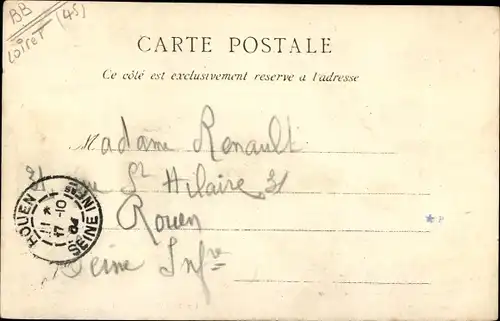 BB
Loiret (45)
CARTE POSTALE
Ce côté est exclusivement reservé a l'adresse
Madame Renault
31 rue St Hilaire 31
Rouen
Seine Infre
ROUEN
17 -10
04
SEINE INF